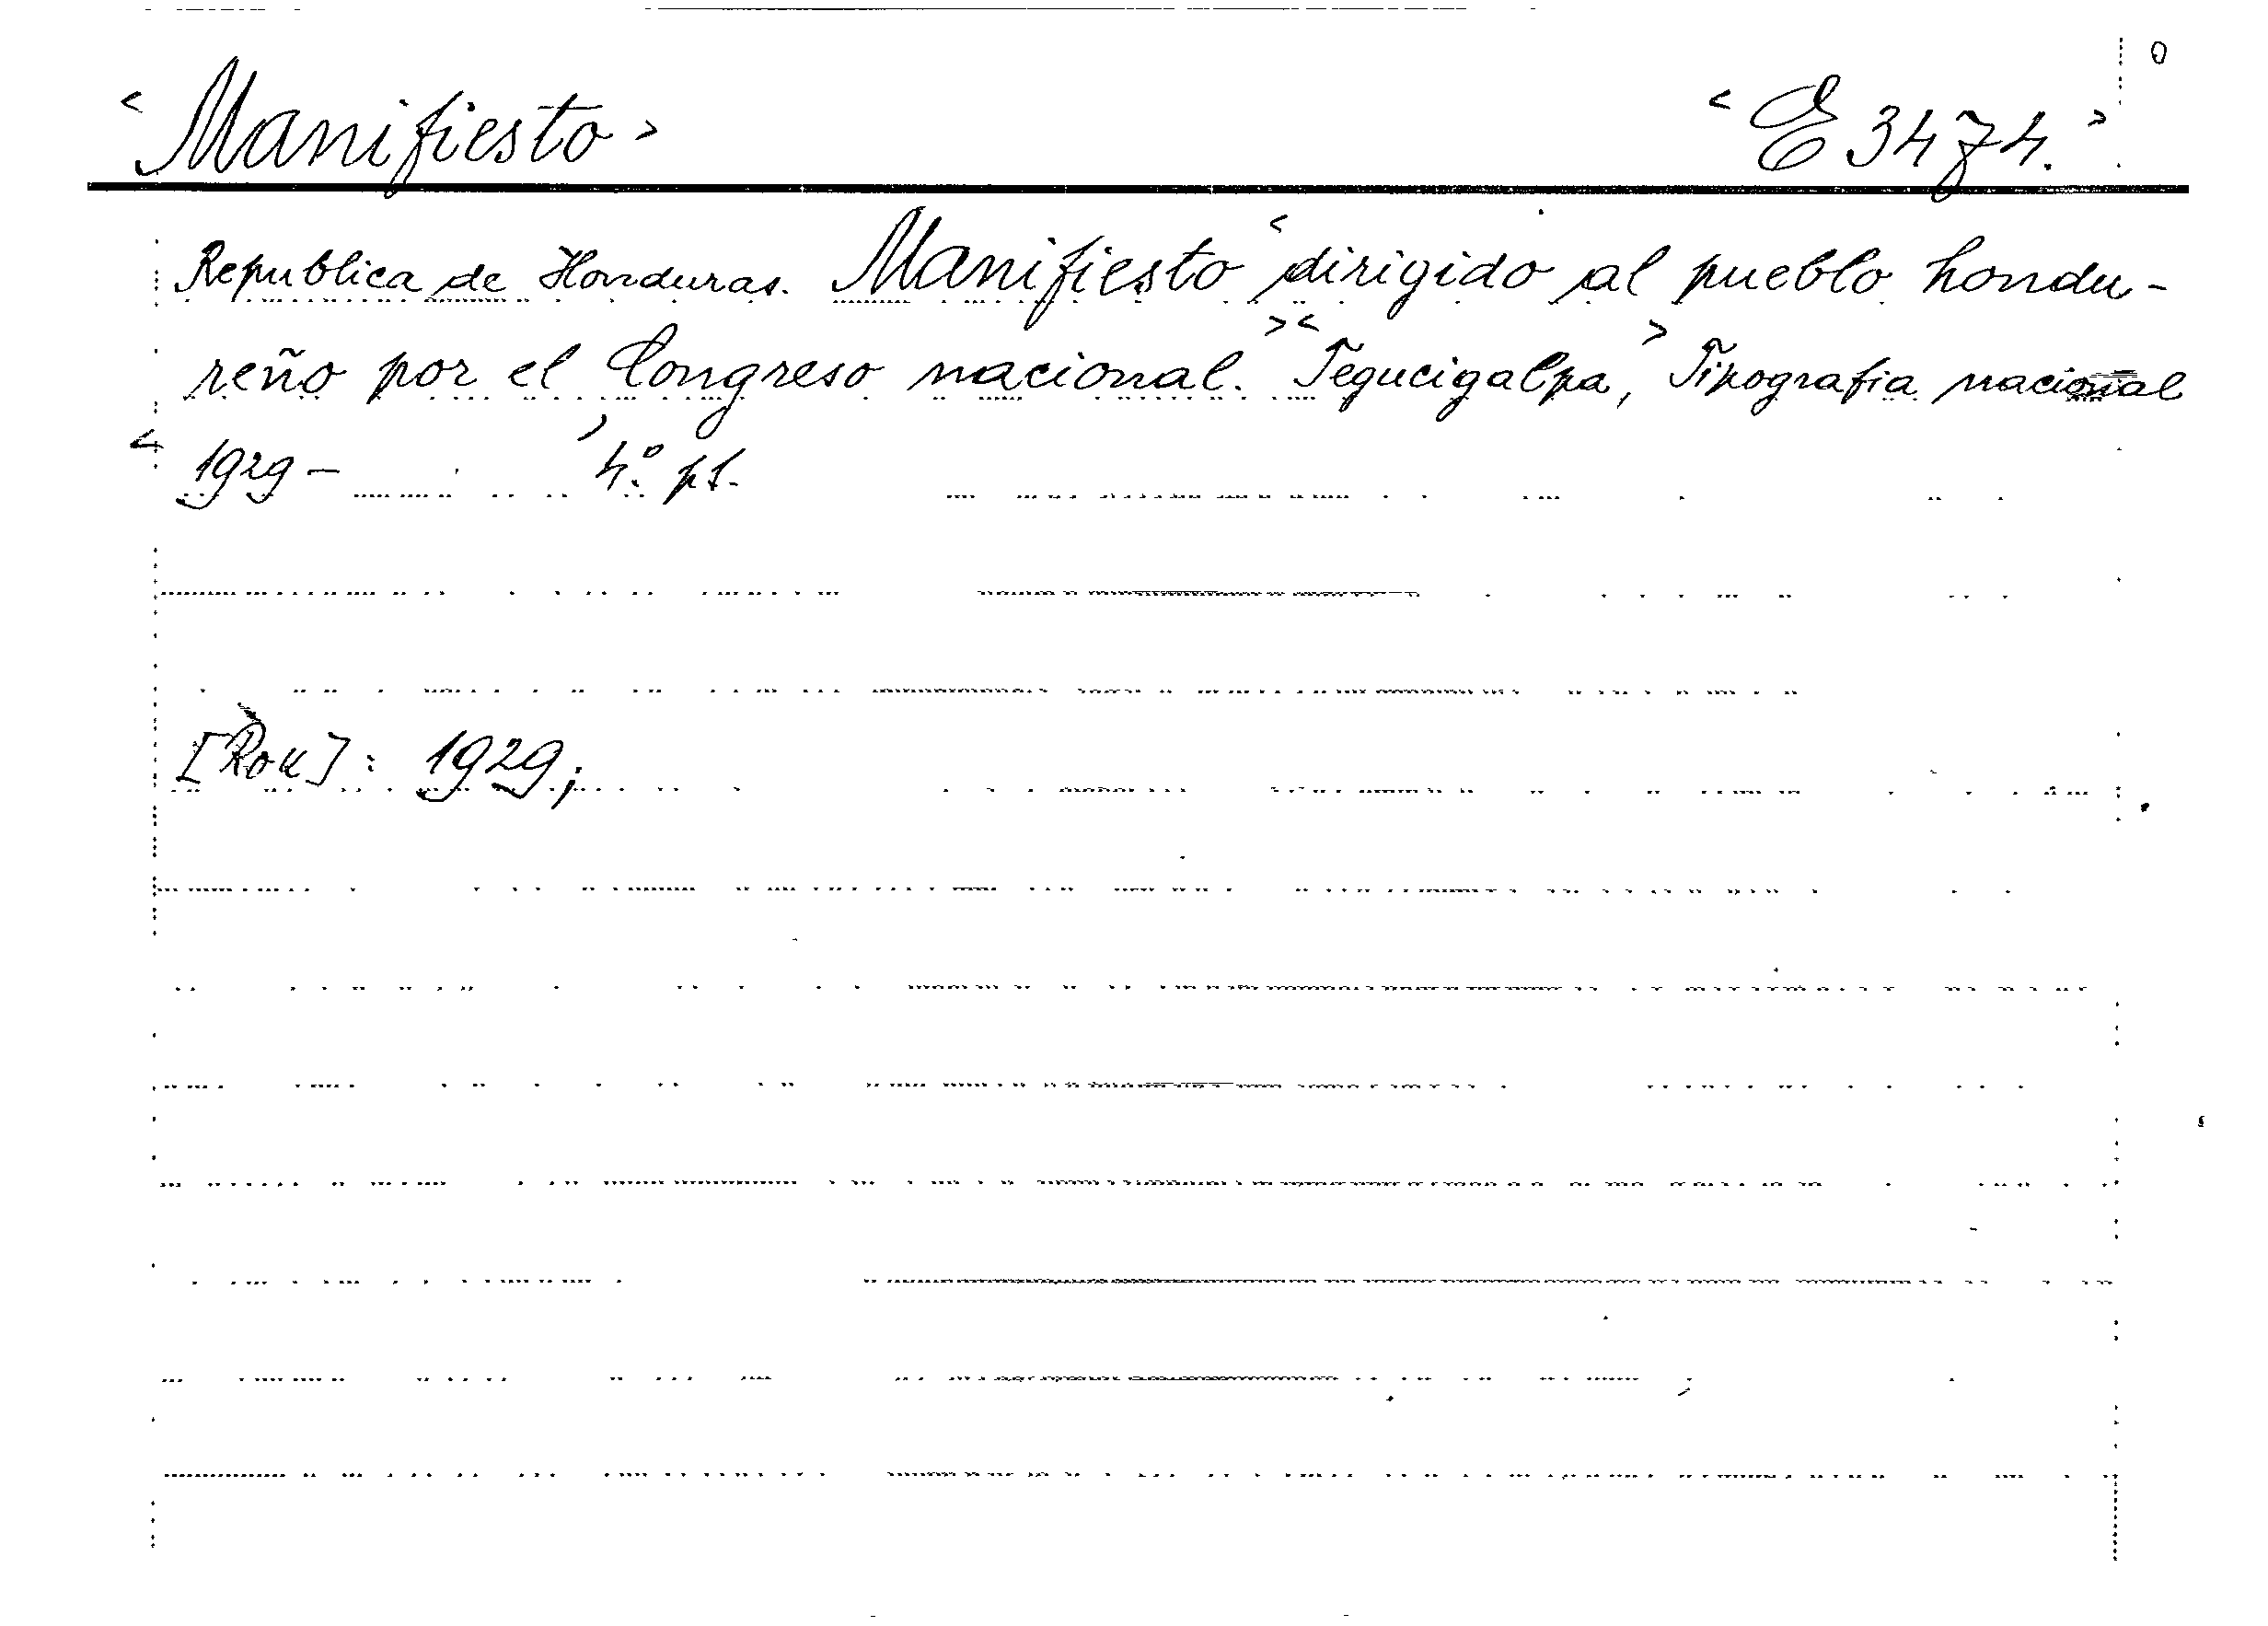 <Manifiesto> <E 3474.>
Republica de Honduras. Manifiesto <dirigido al pueblo hondu-
reño por el Congreso nacional.> <Tegucigalpa,> Tipografia nacional
<1929 - > 4° pf.
[Rok]: 1929;